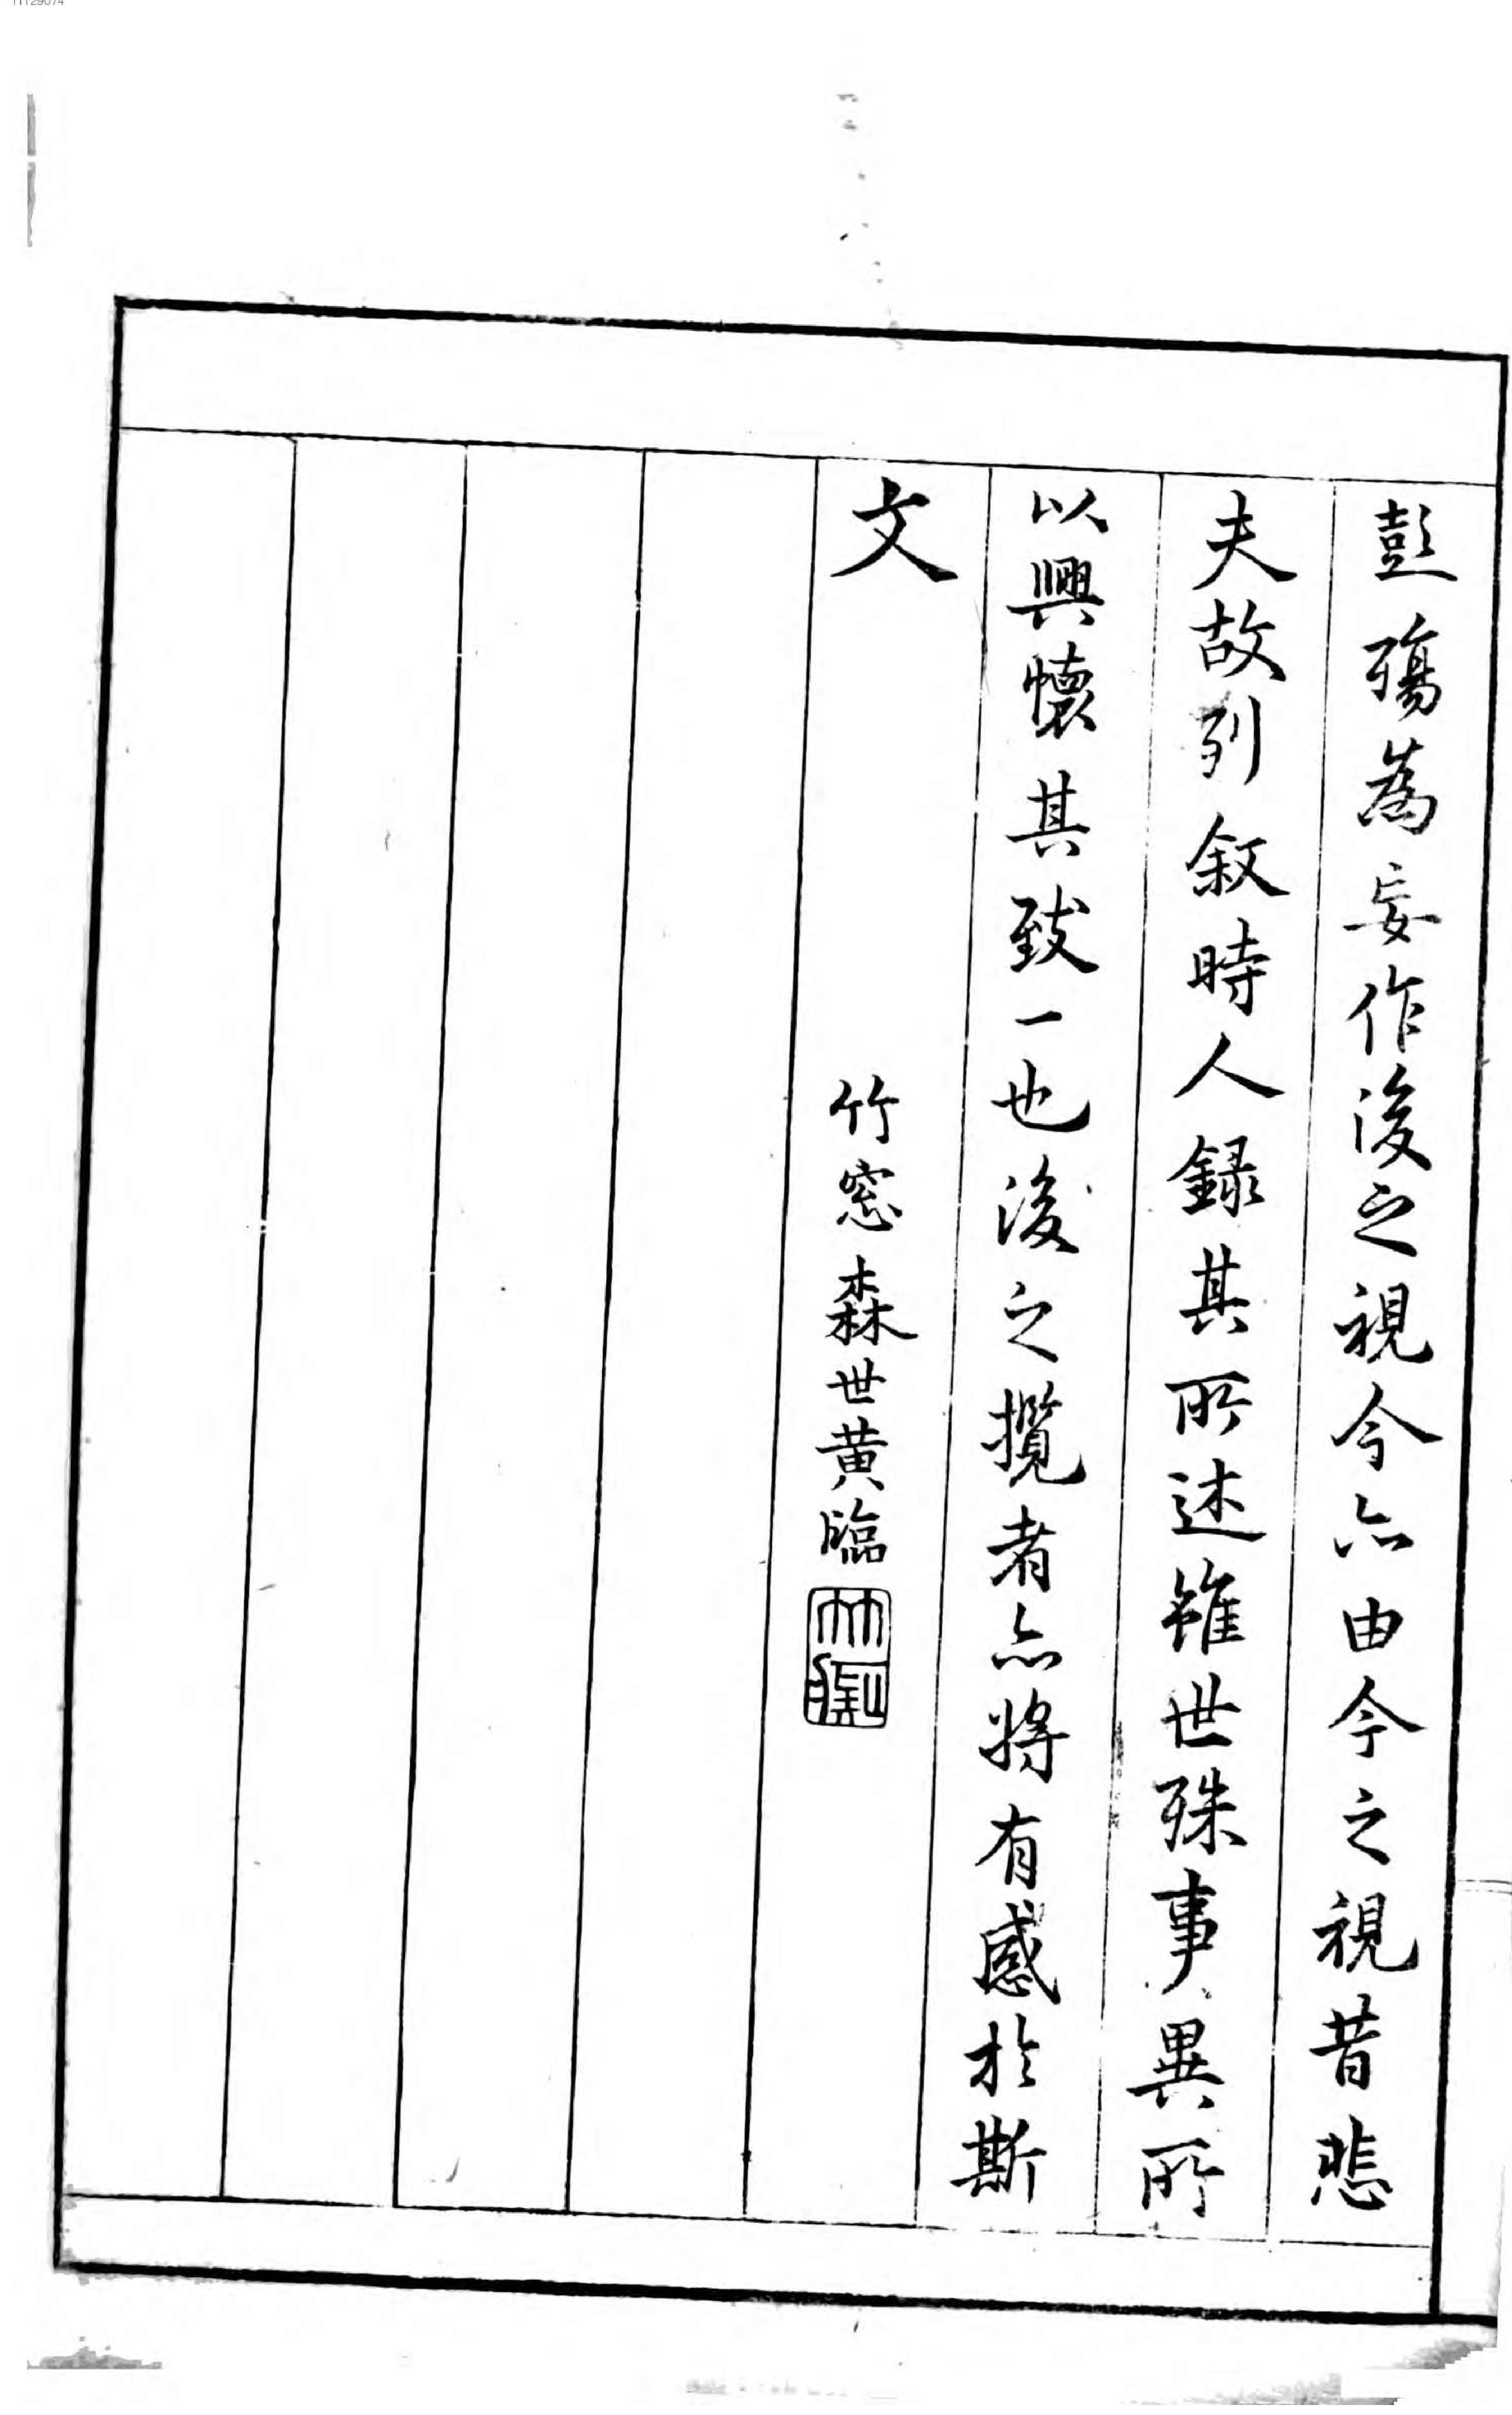 彭殤為妄作後之視今亦由今之視昔悲
夫故列叙時人録其所述雖世殊事異所
以興懷其致一也後之攬者亦將有感於斯
文
竹窓森世黄臨